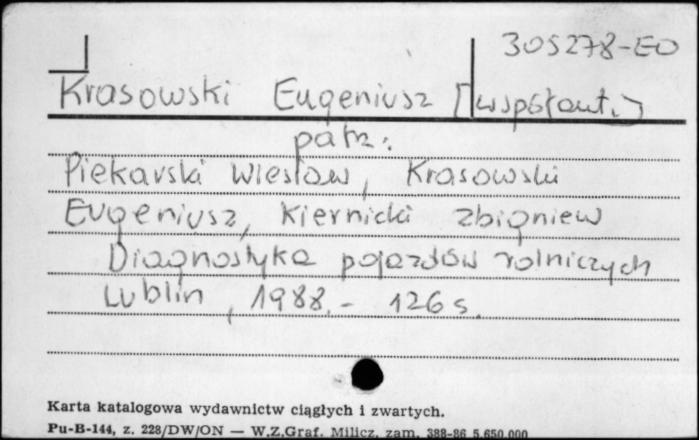 305278-EO
Krasowski Eugeniusz [współaut.]
patrz:
Piekarski Wiesław, Krasowski
Eugeniusz, Kiernicki Zbigniew
Diagnostyka pojazdów rolniczych
Lublin, 1988.- 126 s.
Karta katalogowa wydawnictw ciągłych i zwartych.
Pu-B-144, z. 228/DW/ON — W.Z.Graf. Milicz, zam. 388-86 5.650.000